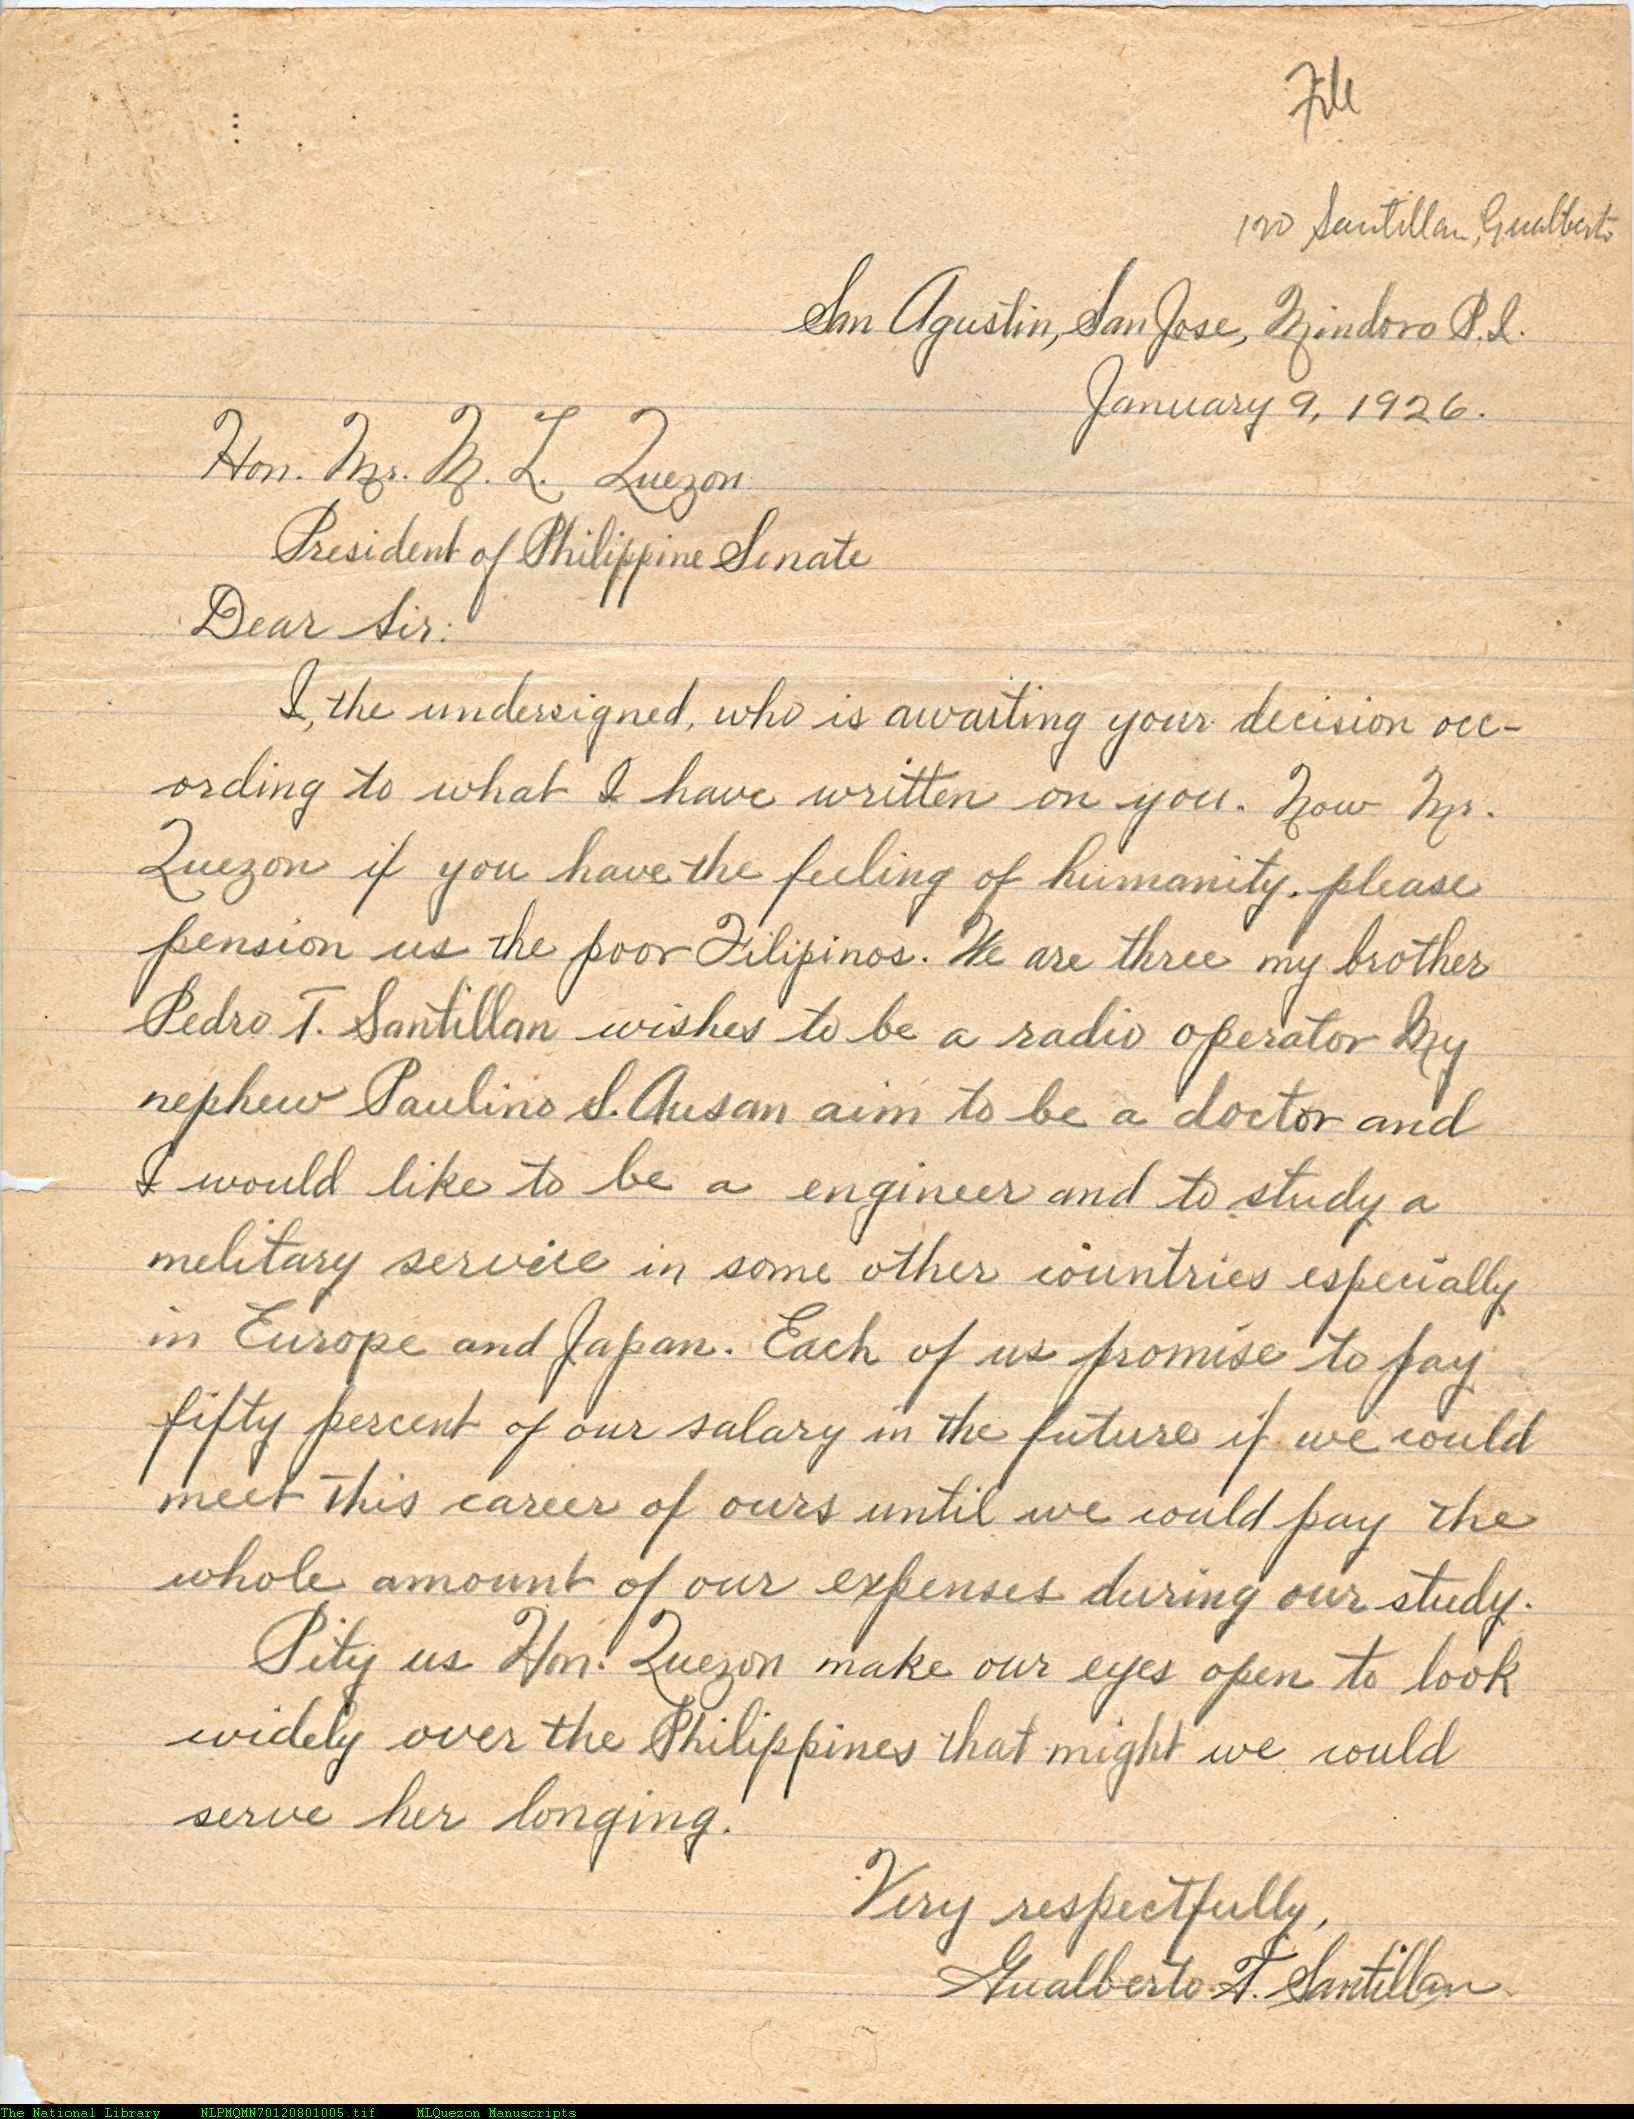 File
120 Santillan, Gualberto
San Agustin, San Jose, Mindoro P.I.
January 9, 1926.
Hon. Mr. M. L. Quezon
President of Philippine Senate
Dear Sir:
I, the undersigned, who is awaiting your decision occ-
ording to what I have written on you. Now Mr.
Quezon if you have the feeling of humanity, please
pension us the poor Filipinos. We are three my brother
Pedro T. Santillan wishes to be a radio operator My
nephew Paulino S. Ausan aim to be a doctor and
I would like to be a engineer and to study a
melitary service in some other countries especially
in Europe and Japan. Each of us promise to pay
fifty percent of our salary in the future if we could
meet this career of ours until we could pay the
whole amount of our expenses during our study.
Pity us Hon. Quezon make our eyes open to look
widely over the Philippines that might we could
serve her longing.
Very respectfully,
Gualberto T. Santillan
The National Library NLPMQMN70120801005.tif MLQuezon Manuscripts